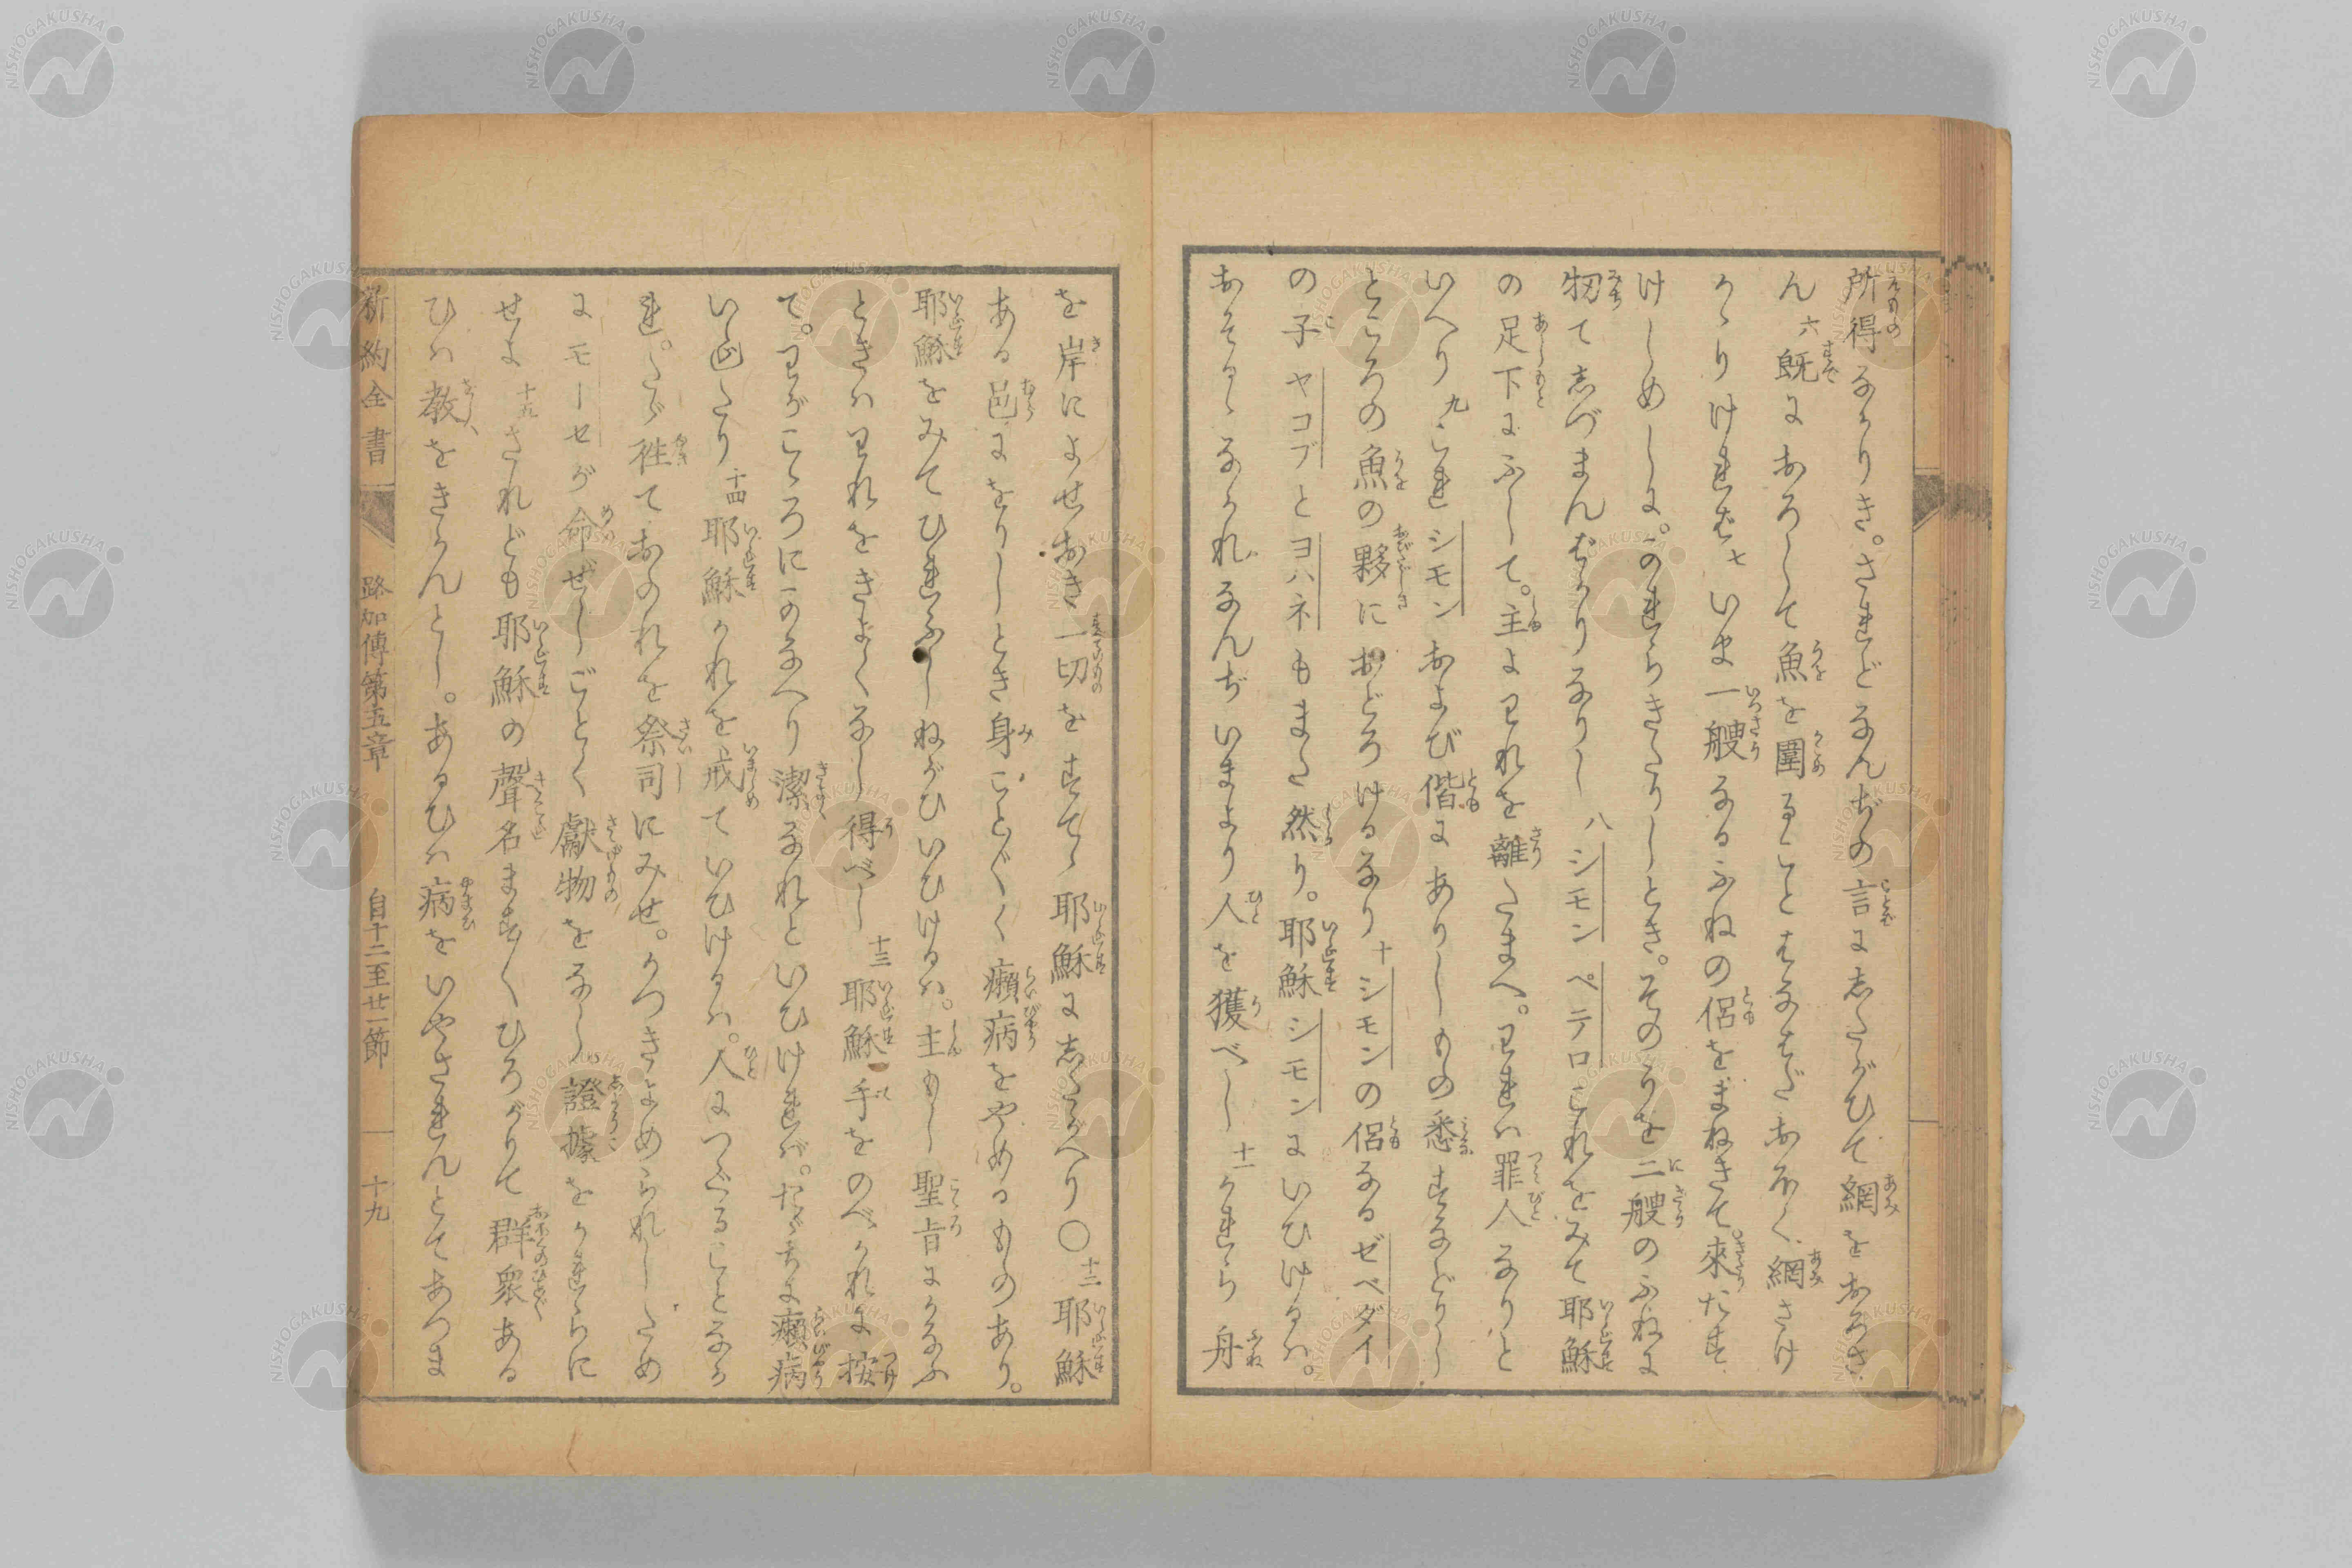 所得なかりき。されどなんぢの言にしたがひて網をおろさ
ん 六 既におろして魚を圍ることはなはだおほく網さけ
かゝりければ 七 いま一艘なるふねの侶をまねきて。來たす
けしめしに。かれらきたりしとき。そのうをを二艘のふねに
物てしづまんばかりなりし 八 シモン ペテロこれをみて耶穌
の足下にふして。主よわれを離たまへ。われハ罪人なりと
いへり 九 これシモンおよび偕にありしもの悉すなどりし
ところの魚の夥におどろけるなり 十 シモンの侶なるゼベダイ
の子ヤコブとヨハネもまた然り。耶穌シモンにいひけるハ。
おそるゝなかれなんぢいまより人を獲べし 十一 かれら舟
を岸によせおき一切をすてゝ耶穌にしたがへり〇 十二 耶穌
ある邑にをりしとき身ことごとく癩病をやめるものあり。
耶穌をみてひれふしねがひいひけるハ。主もし聖旨にかなふ
ときハわれをきよくなし得べし 十三 耶穌手をのべかれに按
て。わがこゝろにかなへり潔なれといひければ。たゞちに癩病
いえたり 十四 耶穌かれを戒ていひけるハ。人につぐることなか
れ。たゞ徃ておのれを祭司にみせ。かつきよめられしため
にモーセが命ぜしごとく獻物をなし證據をかれらに
せよ 十五 されども耶穌の聲名ますますひろがりて群衆ある
ひハ教をきかんとし。あるひハ病をいやされんとてあつま
新約全書 路加傳第五章 自十二至廿一節 十九
NISHOGAKUSHA